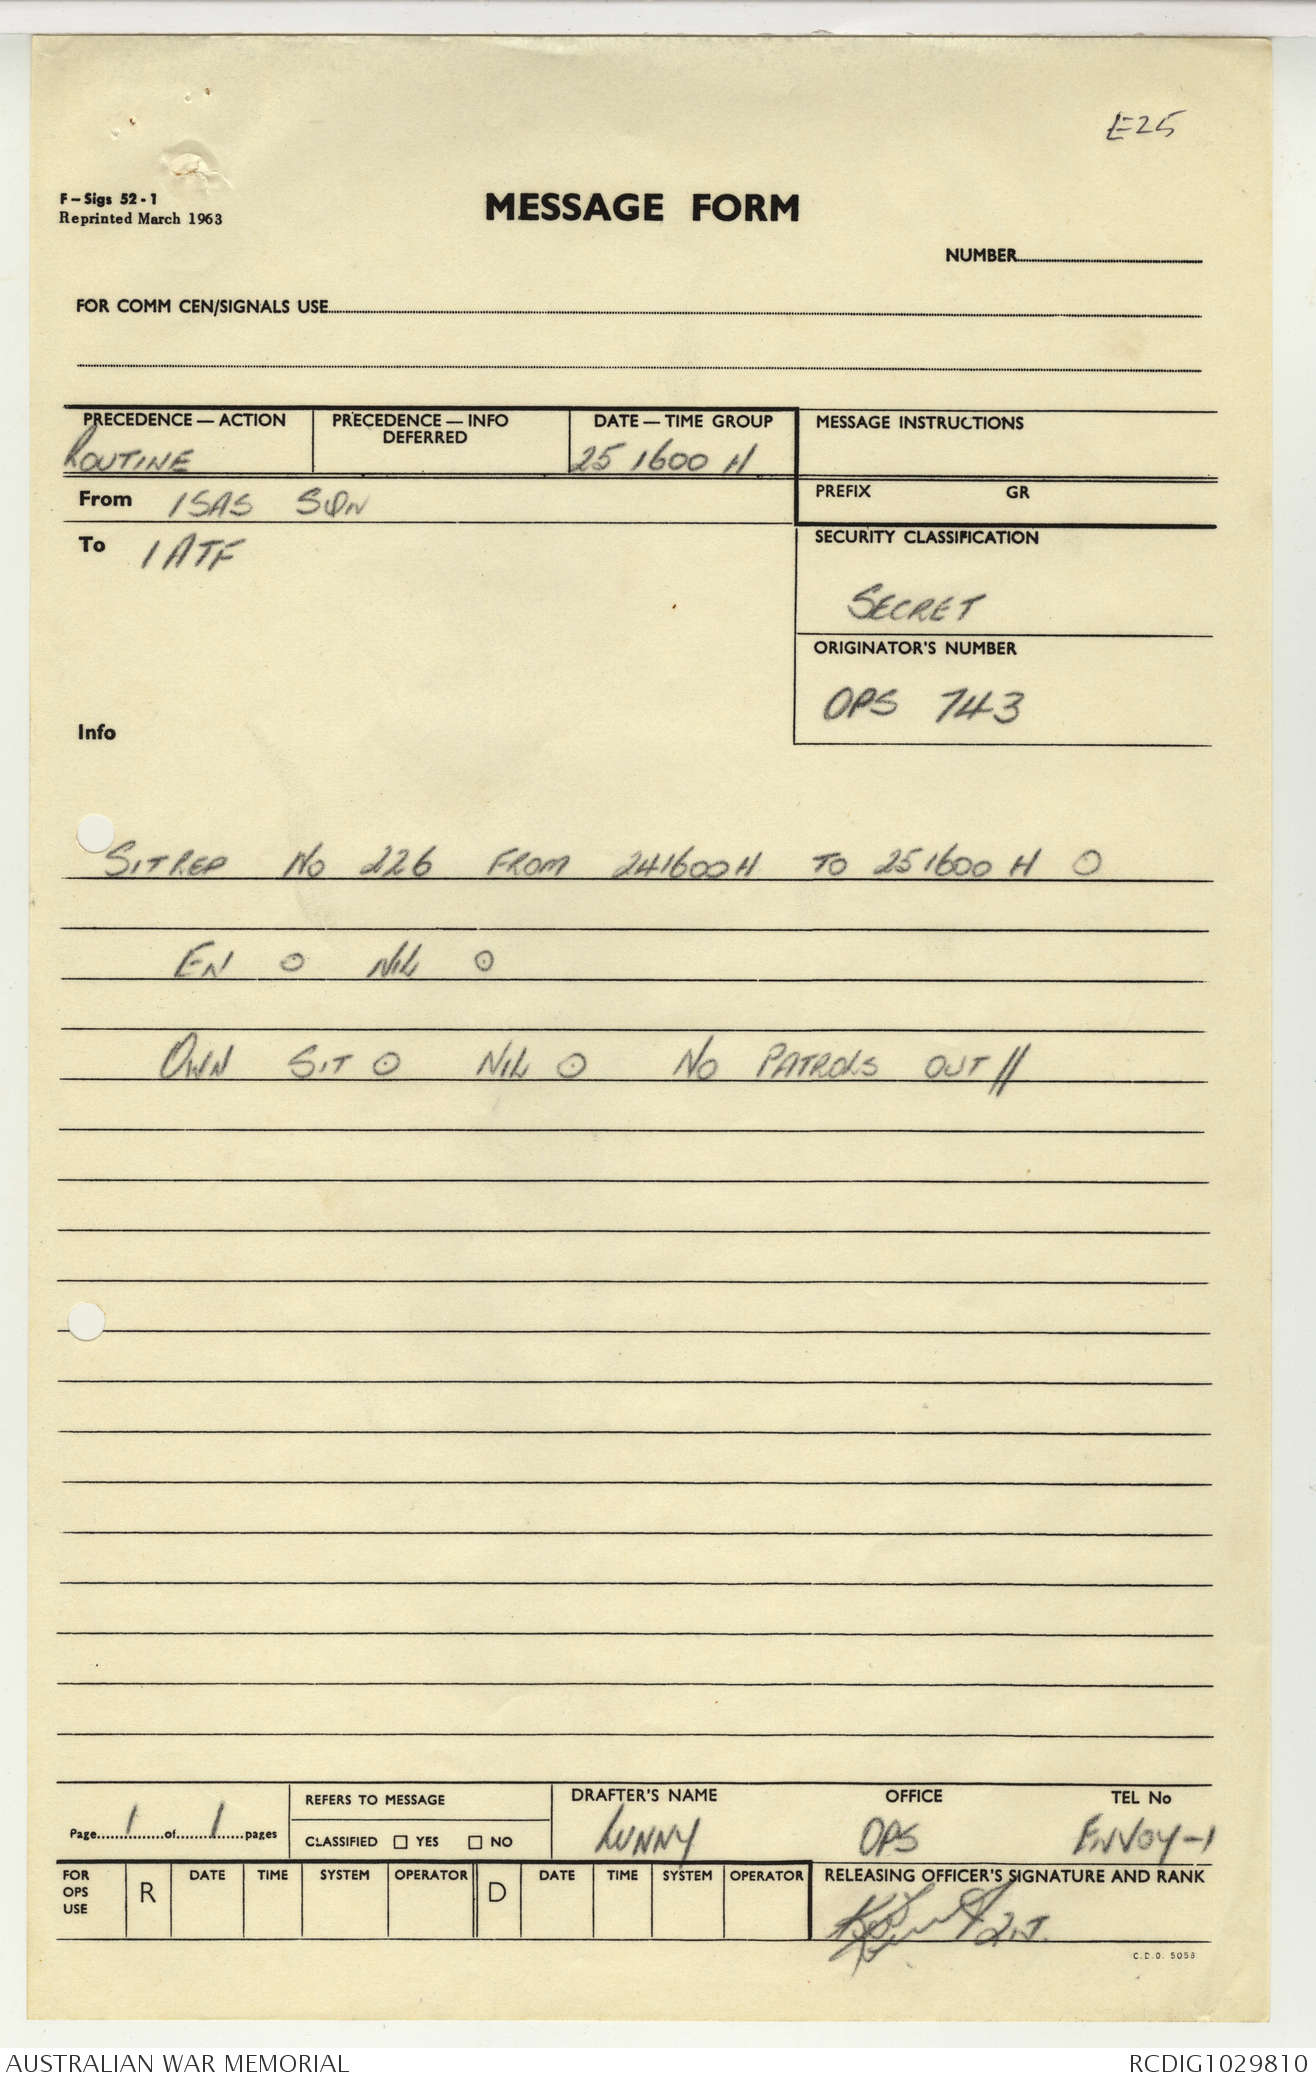 E25
F-Sigs 52-1
Reprinted March 1963
MESSAGE FORM
NUMBER
FOR COMM CEN/SIGNALS USE
PRECEDENCE — ACTION PRECEDENCE — INFO DEFERRED DATE — TIME GROUP MESSAGE INSTRUCTIONS
ROUTINE 251600H
PREFIX GR
From 1SAS SQN
To 1ATF
SECURITY CLASSIFICATION
SECRET
ORIGINATOR'S NUMBER
OPS 743
Info
SITREP NO 226 FROM 241600H TO 251600H O
EN O NIL O
OWN SIT O NIL O NO PATROLS OUT //
Page 1 of 1 pages
REFERS TO MESSAGE
CLASSIFIED ☐ YES ☐ NO
DRAFTER'S NAME OFFICE TEL No
LUNNY OPS ENVOY-1
FOR OPS USE R DATE TIME SYSTEM OPERATOR D DATE TIME SYSTEM OPERATOR RELEASING OFFICER'S SIGNATURE AND RANK
C.D.O. 5058
AUSTRALIAN WAR MEMORIAL RCDIG1029810